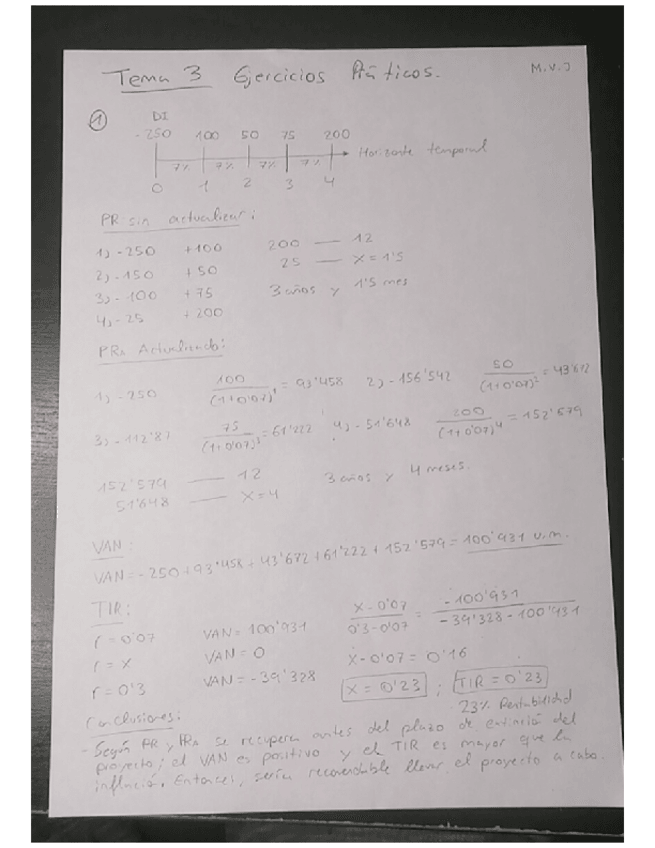 Tema 3 Ejercicios Práticos.
M.V.J
1
DI
-250 100 50 75 200
7% 7% 7% 7% Horizonte temporal
0 1 2 3 4
PR sin actualizar:
1) -250 +100 200 — 12
2) -150 +50 25 — x = 1'5
3) -100 +75 3 años y 1'5 mes
4) -25 +200
PRA Actualizando:
1) -250 100/(1+0'07)^1 = 93'458 2) -156'542 50/(1+0'07)^2 = 43'672
3) -112'87 75/(1+0'07)^3 = 61'222 4) -51'648 200/(1+0'07)^4 = 152'579
152'579 — 12 3 años y 4 meses.
51'648 — x = 4
VAN:
VAN = -250 + 93'458 + 43'672 + 61'222 + 152'579 = 100'931 u.m.
TIR:
r = 0'07 VAN = 100'931 (x - 0'07)/(0'3 - 0'07) = (-100'931)/(-39'328 - 100'931)
r = x VAN = 0 x - 0'07 = 0'16
r = 0'3 VAN = -39'328 x = 0'23 ; TIR = 0'23
23% Rentabilidad
Conclusiones:
- Según PR y PRA se recupera antes del plazo de del
proyecto; el VAN es positivo y el TIR es mayor que la
inflación. Entonces, sería recomendable llevar el proyecto a cabo.